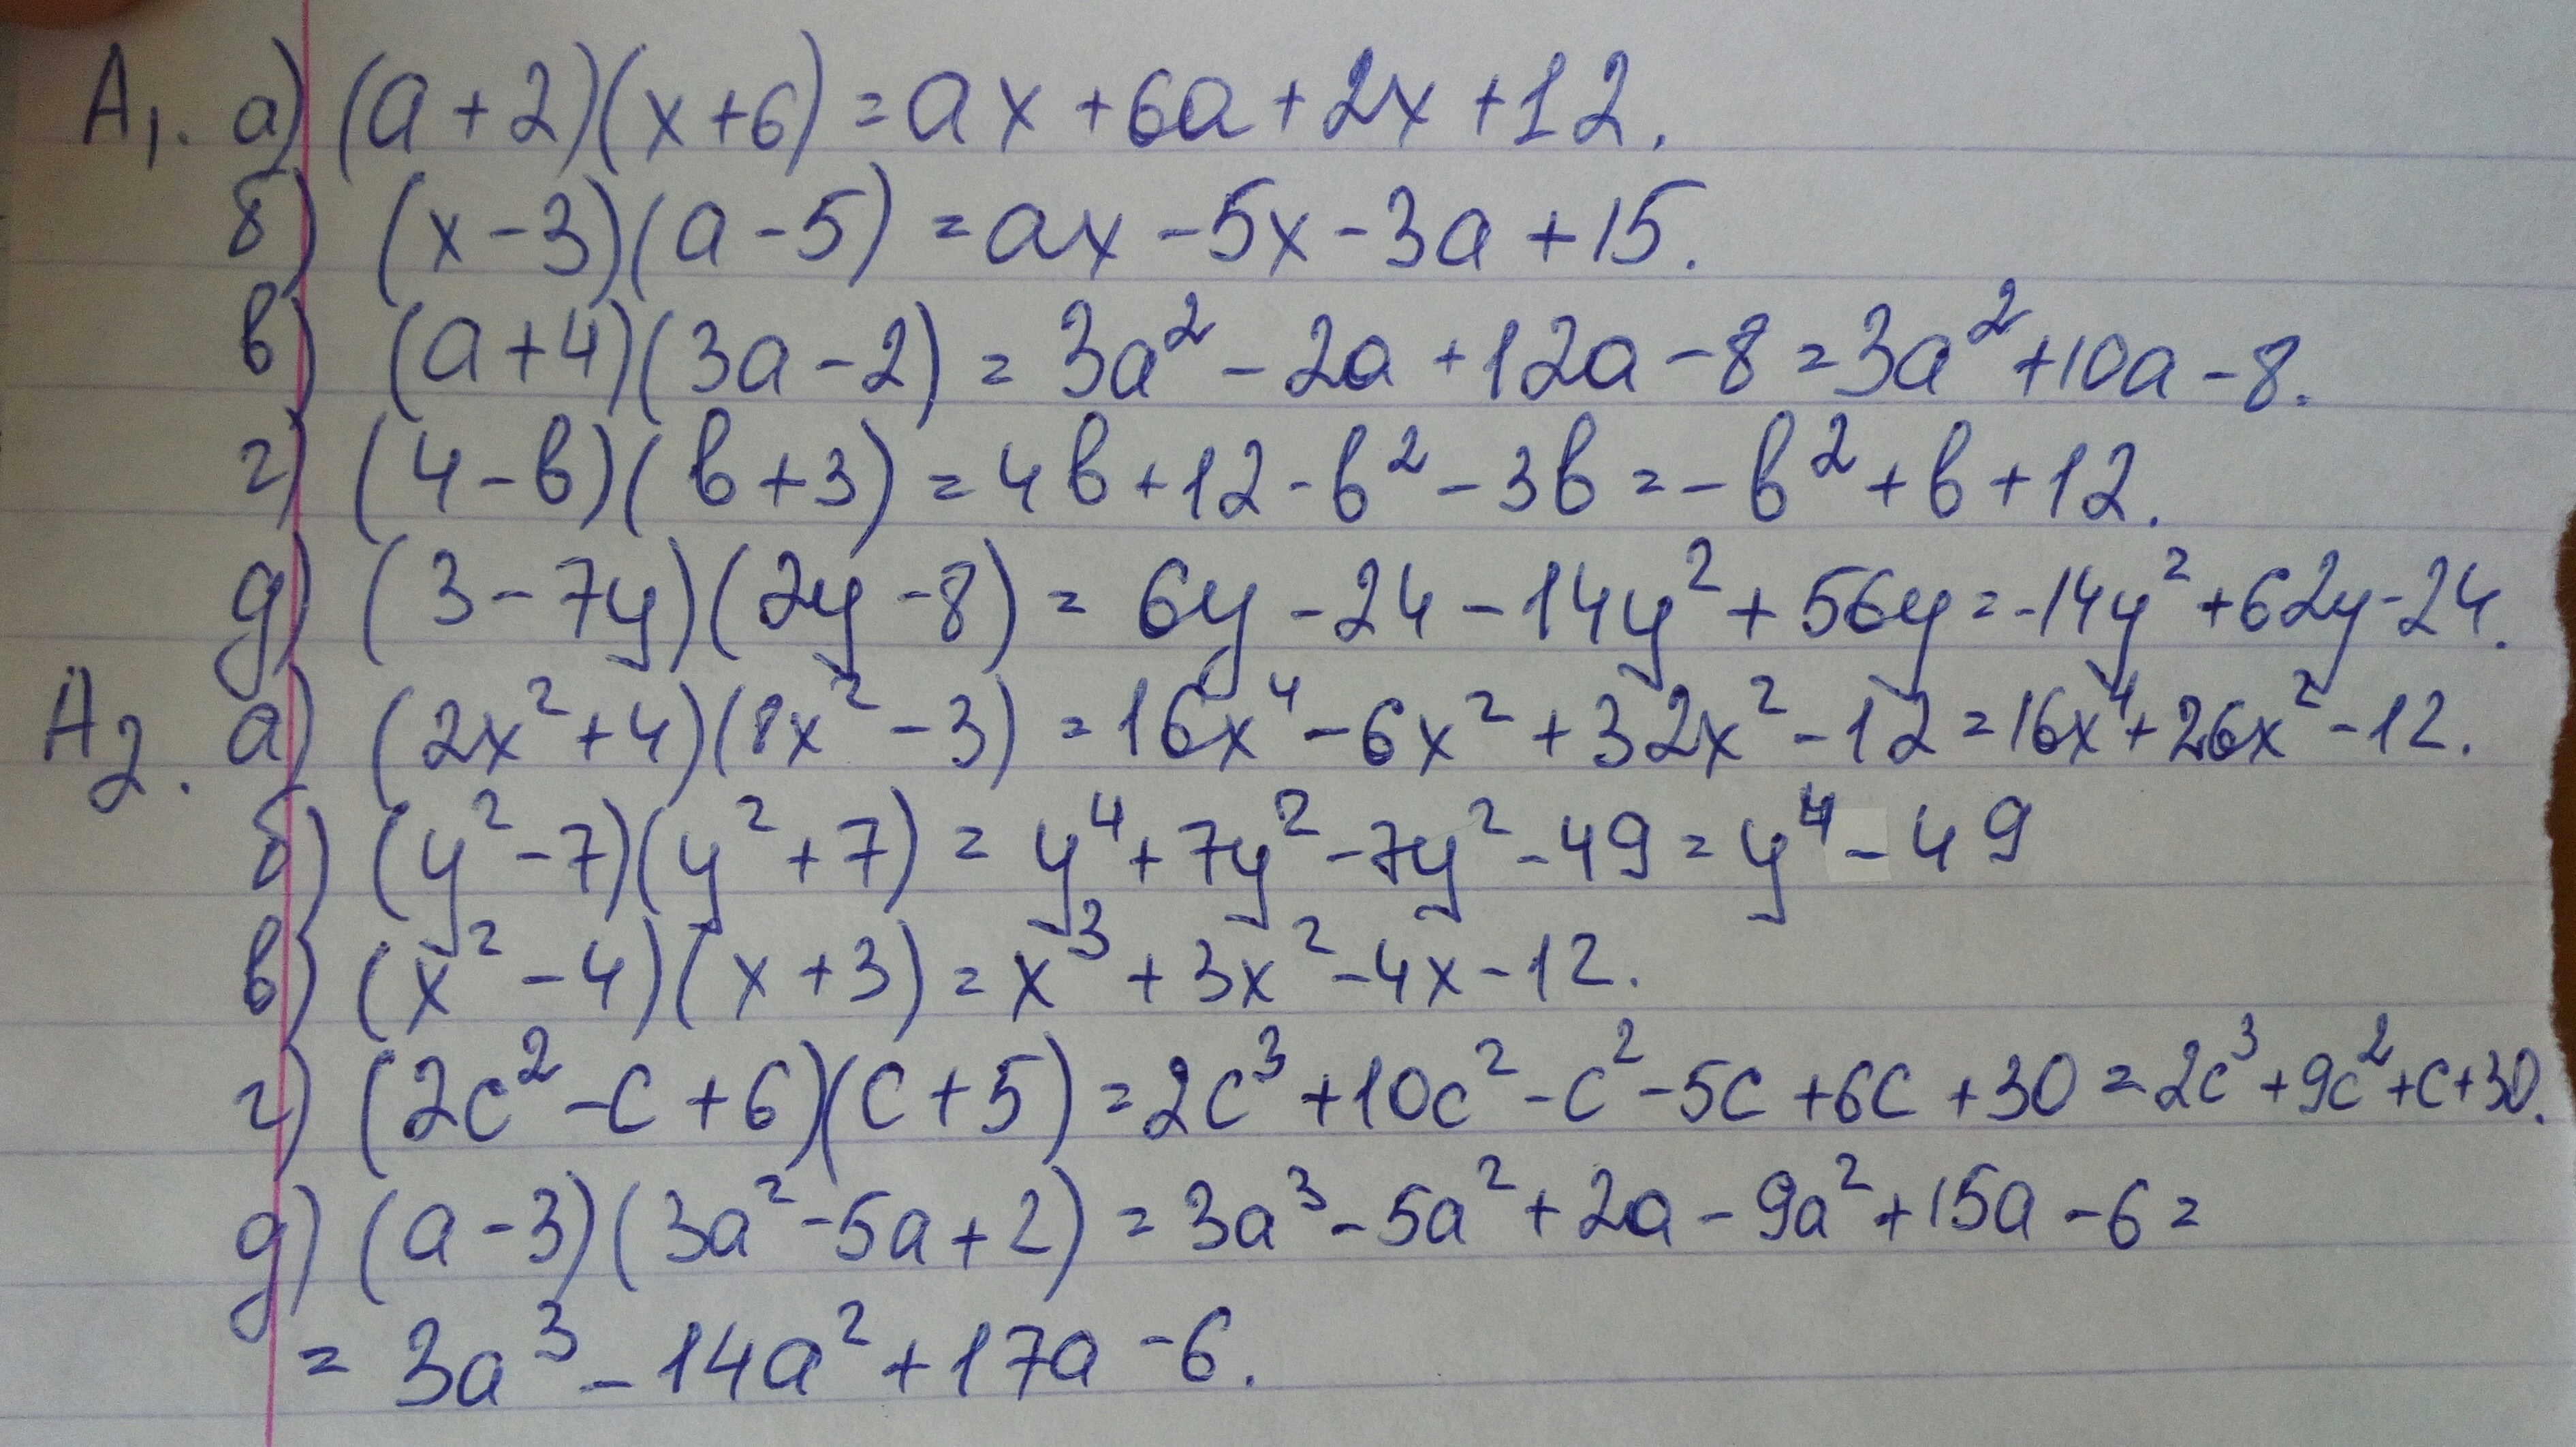 А1. а) (a+2)(x+6) = ax+6a+2x+12.
б) (x-3)(a-5) = ax-5x-3a+15.
в) (a+4)(3a-2) = 3a²-2a+12a-8=3a²+10a-8.
г) (4-b)(b+3) = 4b+12-b²-3b=-b²+b+12.
д) (3-7y)(2y-8) = 6y-24-14y²+56y=-14y²+62y-24.
А2. а) (2x²+4)(8x²-3) = 16x⁴-6x²+32x²-12=16x⁴+26x²-12.
б) (y²-7)(y²+7) = y⁴+7y²-7y²-49=y⁴-49
в) (x²-4)(x+3) = x³+3x²-4x-12.
г) (2c²-c+6)(c+5) = 2c³+10c²-c²-5c+6c+30=2c³+9c²+c+30.
д) (a-3)(3a²-5a+2) = 3a³-5a²+2a-9a²+15a-6=
= 3a³-14a²+17a-6.